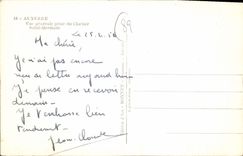 14 - AUXERRE
Vue générale prise du Clocher
Saint-Germain
89
Le 25.2.50
Ma chérie,
Je n'ai pas encore
reçu de lettre aujourd'hui
Je pense en recevoir
demain.
Je t'embrasse bien
tendrement.
Jean-Claude